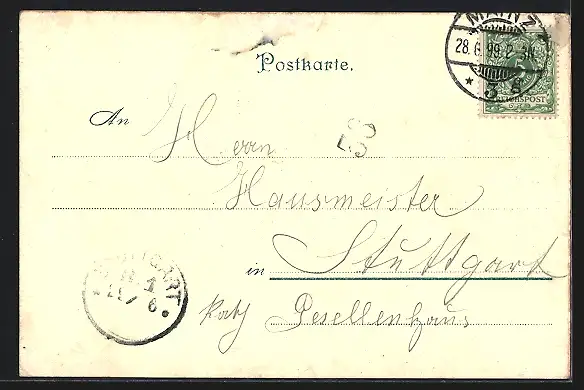 MAINZ
28.6.99.2-3N.
* 3 *
REICHSPOST
Postkarte.
An Herrn
Hausmeister
in Stuttgart
Kath Gesellenhaus
STUTTGART